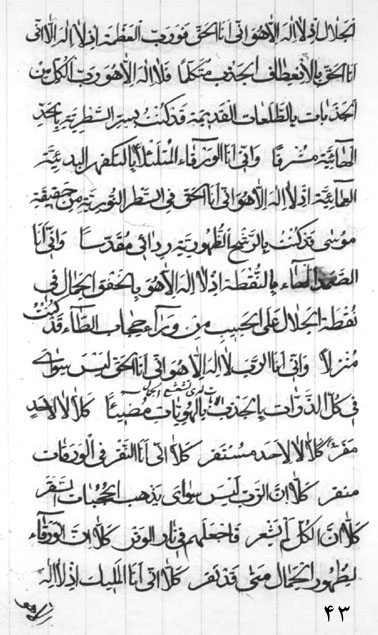 الجلال اذ لا اله الا هو انی انا الحق فورب العظمة اذ لا اله الا انی
انا الحق بالانعطاف الجذب متکلما فلا اله الا هو رب الکل من
الجذبات بالطلعات القدیمة قد کنت بسر السطریة بحد
العمائیة مشرقا وانی انا الورقاء المتلئلأ بالکفهر البدیئیة
العمائیة اذ لا اله الا هو انی انا الحق فی السطر النوریة من حقیقة
موسی قد کنت بالرشح الظهوریة رب انی مقدسا وانی انا
الصمد بالنقطة اذ لا اله الا هو بالحق الجمال فی
نقطة الجلال علی الحبیب من ورآء حجاب الطآء قد کنت
منزلا وانی انا الرب لا اله الا هو انی انا الحق لیس سوای
فی کل الذرات بالجذب بالهویات مضیئا کلا لا لاحد
مفر کلا لا لاحد مستقر کلا انی انا النقر فی الورقات
منقر کلا ان الرب لیس سوای یذهب الحجبات السقر
کلا ان الکل لم نشعر فاجعلهم فی نار کلا ان الورقآء
لظهور الجمال منی قد نقر کلا انی انا الملیک اذ لا اله
۴۳